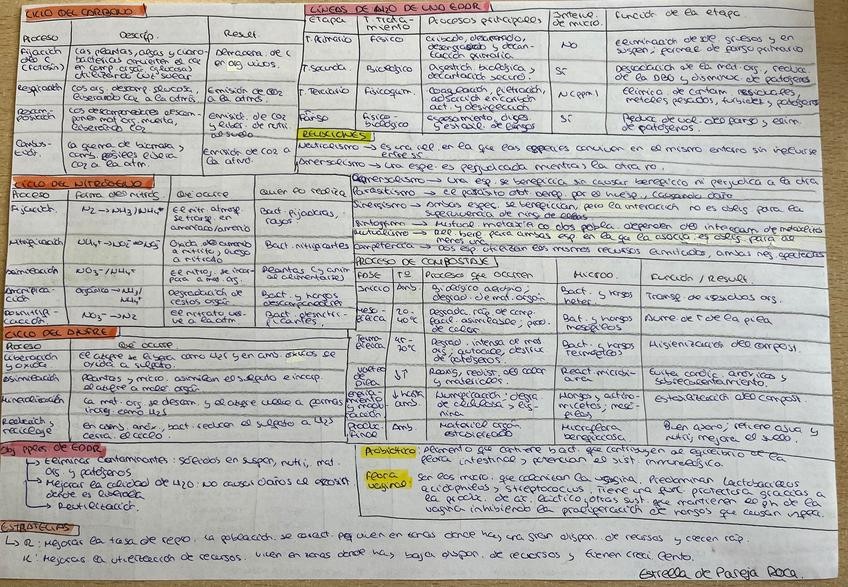 CICLO DEL CARBONO
Proceso Descrip. Result.
Fijación de C (fotosín) Las plantas, algas y ciano-bacterias convierten el CO2 en comp. orgá. (glucosa) utilizando luz solar
Respiración Los org. descomp. glucosa, liberando CO2 a la atms. Emisión de CO2 a la atms.
Descom-posición Los descomponedores descom-ponen mat. org. muerta, liberando CO2 Emisión. de CO2 y liber. de nutri. al suelo
Combus-tión. La quema de biomasa y comb. fósiles libera CO2 a la atm. Emisión de CO2 a la atm.
LÍNEAS DE AIZO DE UNO EDAR
Etapa T. trata-miento Procesos principales Interve. de micro. Función de la etapa
T. Primario Físico Cribado, desarenado, desengrasado y decan-tación primaria No Eliminación de sól. gruesos y en suspen, formac. de fango primario
T. Secunda. Biológico Digestión biológica, decantación secund. Sí Degradación de la mat. org., reducc. de la DBO y disminuc. de patógenos
T. Terciario Fisicoquím. Coagulación, filtración, adsorción en carbón act. y desinfección No (ppal) Elimina. de contam. residuales, metales pesados, turbidez y patógenos
T. Fango Físico-biológico Espesamiento, diges. y estabil. de fangos Sí Reduc. de vol. del fango y elim. de patógenos.
RELACIONES
Neutralismo → es una rel. en la que las especies conviven en el mismo entorno sin influirse entre sí
Amensalismo → una espe. es perjudicada mientras la otra no.
Comensalismo → una esp. se beneficia sin causar beneficio ni perjudica a la otra
Parasitismo → el parásito obt. benef. por el huesp., causando daño
Sinergismo → Ambas espec. se benefician, pero la interacción no es oblig. para la supervivencia de ning. de ellas
Sintrofismo → Mutual. metabó. las dos pobla. dependen del intercam. de metabolitos
Mutualismo → Rel. bene. para ambas esp. en la que la asocia. es oblig. para al menos una
Competencia → dos esp. utilizan los mismos recursos limitados, ambas neg. afectadas
CICLO DEL NITRÓGENO
Proceso Forma del nitróg. Qué ocurre Quién lo realiza
Fijación N2 → NH3/NH4+ El nitr. atmosf. se transf. en amoníaco/amonio Bact. fijadoras, rayos
Nitrificación NH4+ → NO2- → NO3- Oxida. del amonio a nitrito, luego a nitrato Bact. nitrificantes
Asimilación NO3-/NH4+ El nitróg. se incor-pora a mat. org. Plantas (y anim. al alimentarse)
Amonifica-ción Orgánico → NH3/NH4+ Degradación de restos orgán. Bact. y hongos descomponedores
Desnitrifi-cación NO3- → N2 El nitrato vuel-ve a la atm. Bact. desnitri-ficantes
PROCESO DE COMPOSTAJE
FASE Tº Procesos que ocurren Microo. Función / Result.
Inicio Amb. degrad. de mat. orgán. Bact. y hongos heter. Transf. de residuos org.
Meso-fílica 20-40ºC Degrada. ráp. de comp. fácil. asimilable; prod. de calor Bat. y hongos mesófilos Aume. de Tº de la pila
Termo-fílica 45-70ºC Degrad. intensa de mat. org; autocale, destruc. de patógenos Bact. y hongos termófilos Higienización del compost.
Volteo de pila ↓Tº Reoxig, redist. del calor y materiales React. microbi-ana Evita condic. anóxicas y sobrecalentamiento.
Enfria-miento y madu-ración ↓ hasta amb. Humificación, degra. de celulosa y lig-nina Hongos y actino-micetos, mesó-filos Estabilización del compost.
Produc. Final Amb. Material orgán. estabilizado Microflora beneficiosa. Buen aroma, retiene agua y nutri; mejora el suelo.
CICLO DEL AZUFRE
Proceso Qué ocurre
Liberación y oxida. El azufre se libera como H2S y en amb. óxicos se oxida a sulfato.
Asimilación Plantas y micro. asimilan el sulfato e incorp. el azufre a mater. orgán.
Mineralización La mat. org. se descom. y el azufre vuelve a formas inorg. como H2S
Reducción y reciclaje En cond. anóx., bact. reducen el sulfato a H2S cierra. el ciclo.
Obj. ppales de EDAR
→ Eliminar contaminantes: sólidos en suspen, nutri, mat. org. y patógenos
→ Mejorar la calidad de H2O: no causar daños al ecosist. donde es liberada
→ Reutilización.
Probiótico: Alimento que contiene bact. que contribuyen al equilibrio de la flora intestinal y potencian el sist. inmunológico.
Flora vaginal: son los micro. que colonizan la vagina. Predominan Lactobacillus acidophilus y streptococcus. Tiene una func. protectora gracias a la produc. de ác. láctico y otras sust. que mantienen el ph de la vagina inhibiendo la proliferación de hongos que causan infecc.
ESTRATEGIAS
↳ R: Mejorar la tasa de repro. La población se caract. por vivir en zonas donde hay una gran dispon. de recursos y crecen ráp.
K: Mejorar la utilización de recursos. Viven en zonas donde hay baja dispon. de recursos y tienen creci. lento.
Estrella de Pareja Roca.